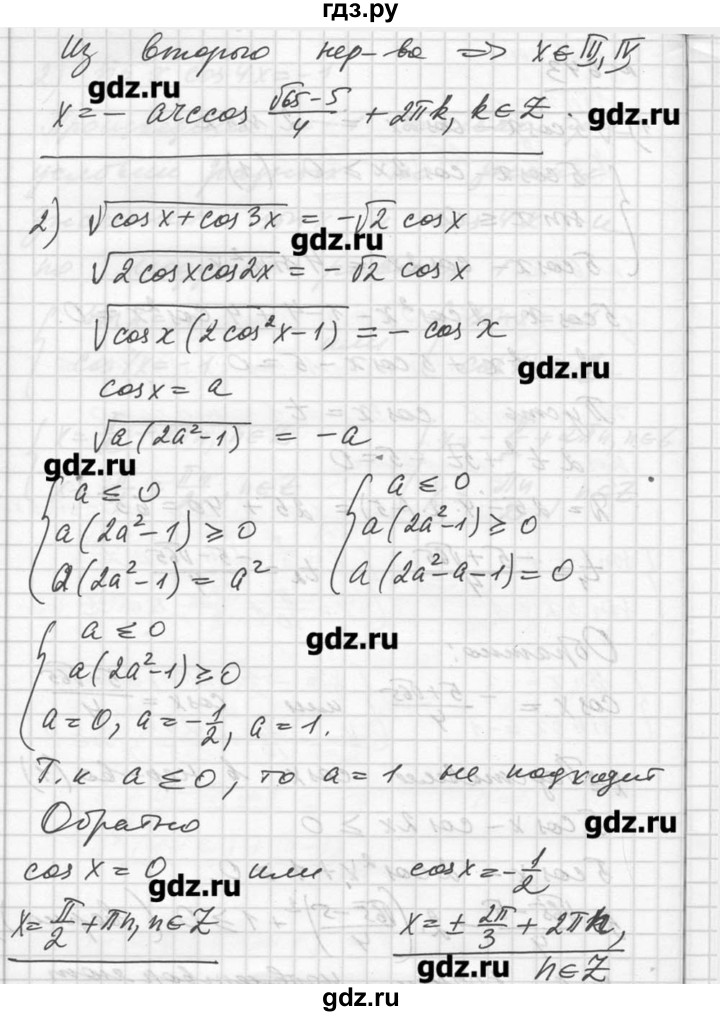 гдз.ру
Из второго нер-ва => x ∈ III, IV
gdz.ru
x = - arccos (√65 - 5)/4 + 2πk, k ∈ Z.
gdz.ru
2) √(cos x + cos 3x) = -√2 cos x
gdz.ru
√(2 cos x cos 2x) = -√2 cos x
√(cos x (2 cos² x - 1)) = - cos x
gdz.ru
cos x = a
√(a(2a² - 1)) = -a
gdz.ru
{ a ≤ 0 { a ≤ 0
a(2a² - 1) ≥ 0 a(2a² - 1) ≥ 0
a(2a² - 1) = a² a(2a² - a - 1) = 0
{ a ≤ 0
gdz.ru
a(2a² - 1) ≥ 0
a = 0, a = -1/2, a = 1.
Т.к a ≤ 0, то a = 1 не подходит
Обратно
gdz.ru
cos x = 0 или cos x = -1/2
gdz.ru
x = π/2 + πn, n ∈ Z x = ± 2π/3 + 2πn,
gdz.ru
n ∈ Z
gdz.ru